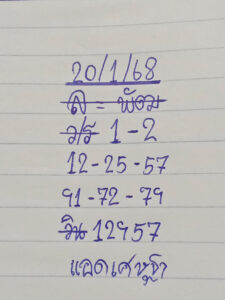 20/1/68
ล = พัดม
ว/ร 1-2
12-25-57
91-72-79
วิน 12957
แอดเศรษฐี